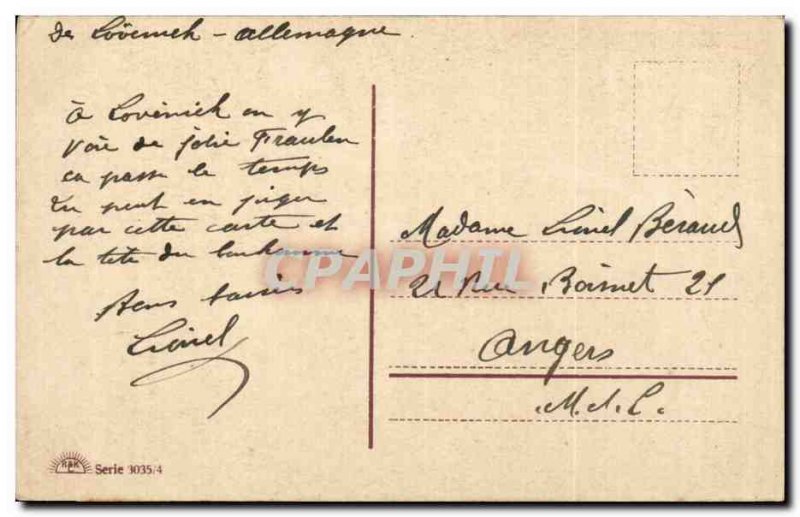 de Lövenich - allemagne
à Lövenich on y
voie de jolie Fraulen
ca passe le temps
tu peut en juger
par cette carte et
la tete du bonhomme
Bons baisers
Lionel
Madame Lionel Béraud
21 Rue Boisnet 21
Angers
M. & L.
CPAPHIL
R&K
L
Serie 3035/4